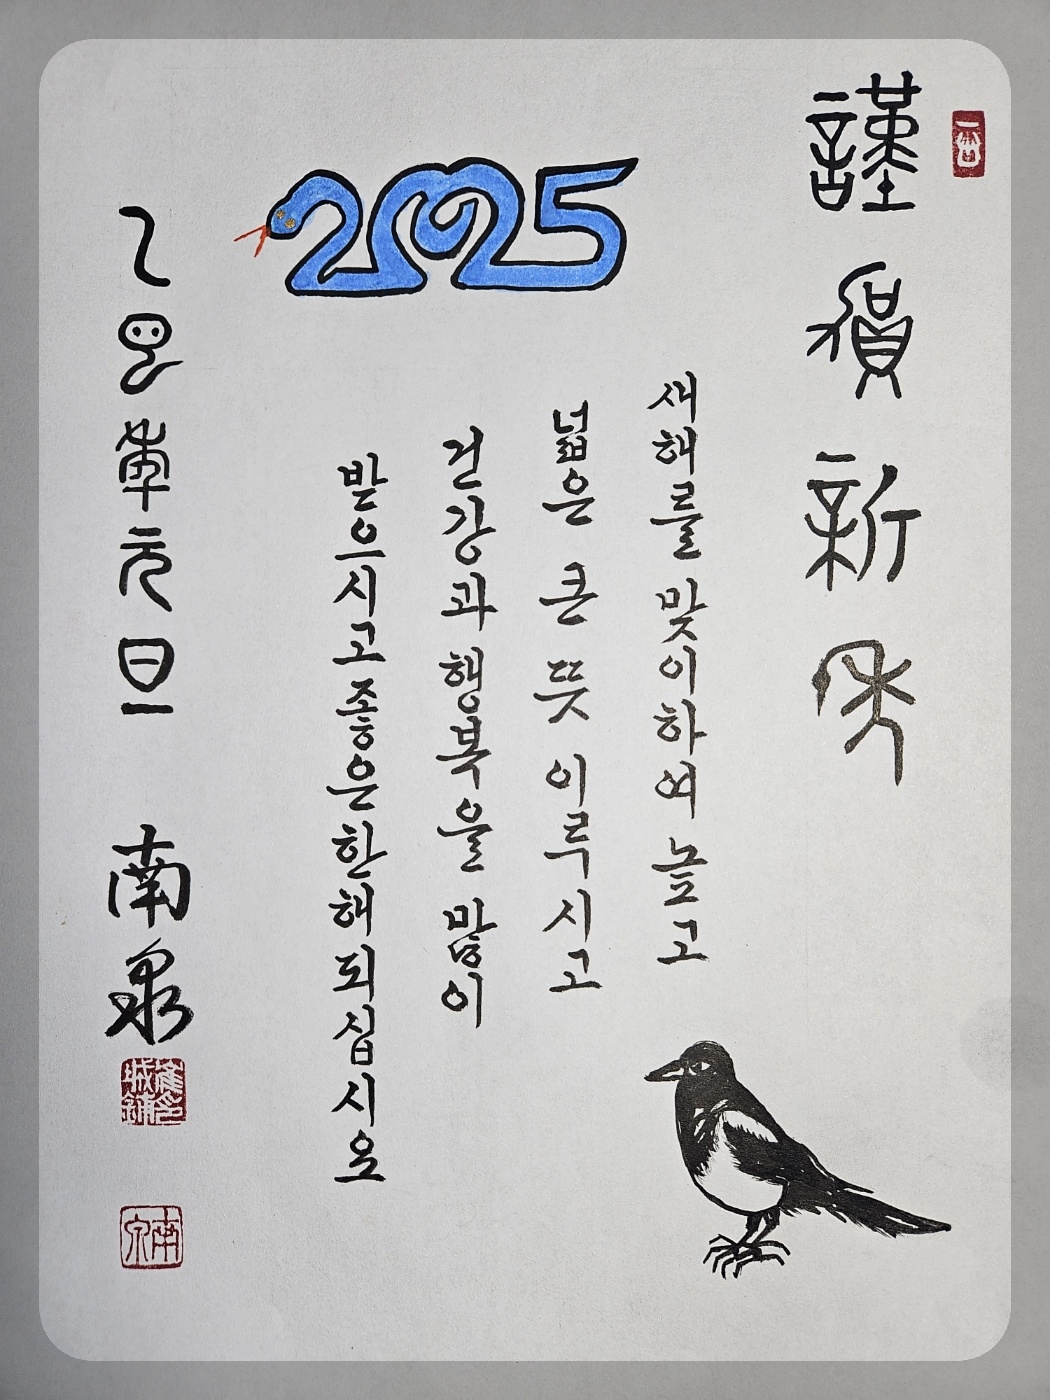 謹賀新年
2025
새해를 맞이하여 높고
넓은 큰 뜻 이루시고
건강과 행복을 많이
받으시고 좋은 한해 되십시오
乙巳年元旦
南泉
南泉